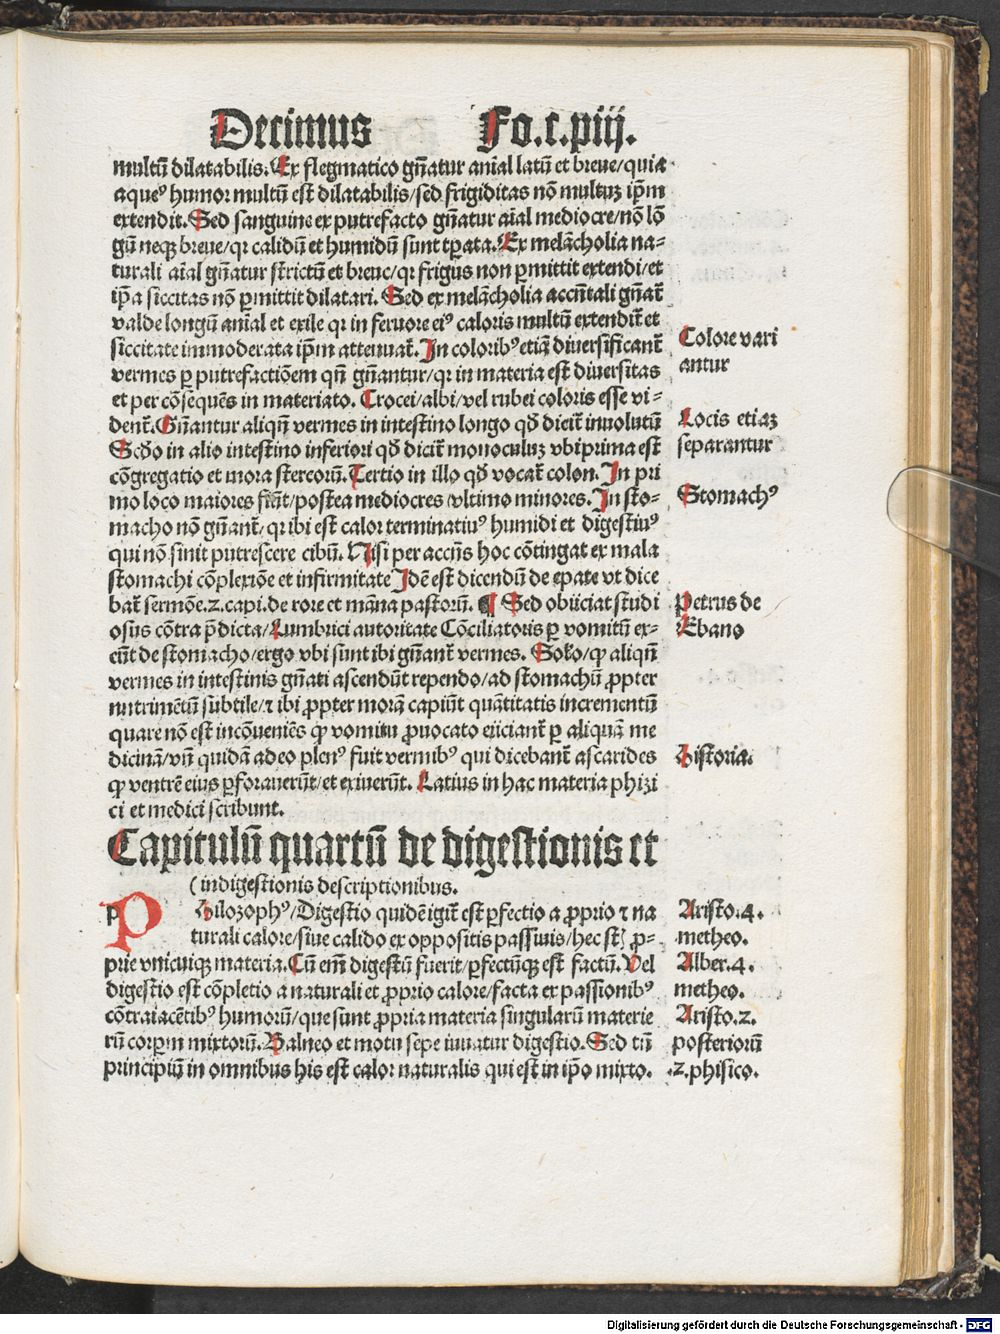 Decimus Fo.c.xiij.
multū dilatabilis. Ex flegmatico gn̄atur anīal latū et breue/quia
aqueꝰ humor multū est dilatabilis/sed frigiditas nō multuꝫ ip̄m
extendit. Sed sanguine ex putrefacto gn̄atur aīal mediocre/nō lō
gū neqꝫ breue/qꝛ calidū et humidū sunt tꝑata. Ex melācholia na-
turali aīal gn̄atur strictū et breue/qꝛ frigus non ꝑmittit extendi/et
ip̄a siccitas nō ꝑmittit dilatari. Sed ex melācholia accn̄tali gn̄at̄
valde longū anīal et exile qꝛ in feruore eiꝰ caloris multū extendit̄ et
siccitate immoderata ip̄m attenuat̄. In coloribꝰ etiā diuersificant̄
vermes ꝑ putrefactiōem qn̄ gn̄antur/qꝛ in materia est diuersitas
et per cōsequēs in materiato. Crocei/albi/vel rubei coloris esse vi-
dent̄. Gn̄antur aliqn̄ vermes in intestino longo qd̄ dicit̄ inuolutū
Scd̄o in alio intestino inferiori qd̄ dicit̄ monoculuꝫ vbi prima est
cōgregatio et mora stercorū. Tertio in illo qd̄ vocat̄ colon. In pri
mo loco maiores fiūt/postea mediocres/vltimo minores. In sto-
macho nō gn̄ant̄/qꝛ ibi est calor terminatiuꝰ humidi et digestiuꝰ
qui nō sinit putrescere cibū. Nisi per accn̄s hoc cōtingat ex mala
stomachi cōplexiōe et infirmitate Idē est dicendū de epate vt dice
bat̄ sermōe.2.capi.de rore et māna pastorū. ¶ Sed obiiciat studi
osus cōtra p̄dicta/Lumbrici autoritate Cōciliatoris ꝑ vomitū ex-
eūt de stomacho/ergo vbi sunt ibi gn̄ant̄ vermes. Solo/ꝙ aliqn̄
vermes in intestinis gn̄ati ascendūt rependo/ad stomachū ꝓpter
nutrimētū subtile/⁊ ibi ꝓpter morā capiūt quātitatis incrementū
quare nō est incōueniēs ꝙ vomitu ꝓuocato eiiciant̄ ꝑ aliquā me
dicinā/vn̄ quidā adeo plenꝰ fuit vermibꝰ qui dicebant̄ ascarides
ꝙ ventrē eius ꝑforauerūt/et exiuerūt. Latius in hac materia phizi
ci et medici scribunt.
Capitulū quartū de digestionis et
(indigestionis descriptionibus.
P Philozophꝰ/Digestio quidē igit̄ est ꝑfectio a ꝓprio ⁊ na
turali calore/siue calido ex oppositis passiuis/hec st̄ ꝓ-
prie vnicuiqꝫ materia. Cū em̄ digestū fuerit/ꝑfectūqꝫ est factū. Vel
digestio est cōpletio a naturali et ꝓprio calore/facta ex passionibꝰ
cōtraiacētibꝰ humorū/que sunt ꝓpria materia singularū materie
rū corꝑm mixtorū. Balneo et motu sepe iuuatur digestio. Sed tn̄
principiū in omnibus his est calor naturalis qui est in ip̄o mixto.
Colore vari
antur
Locis etiaꝫ
separantur
Stomachꝰ
Petrus de
Ebano
Historia.
Aristo.4.
metheo.
Alber.4.
metheo.
Aristo.2.
posteriorū
.2.phisico.
Digitalisierung gefördert durch die Deutsche Forschungsgemeinschaft - DFG